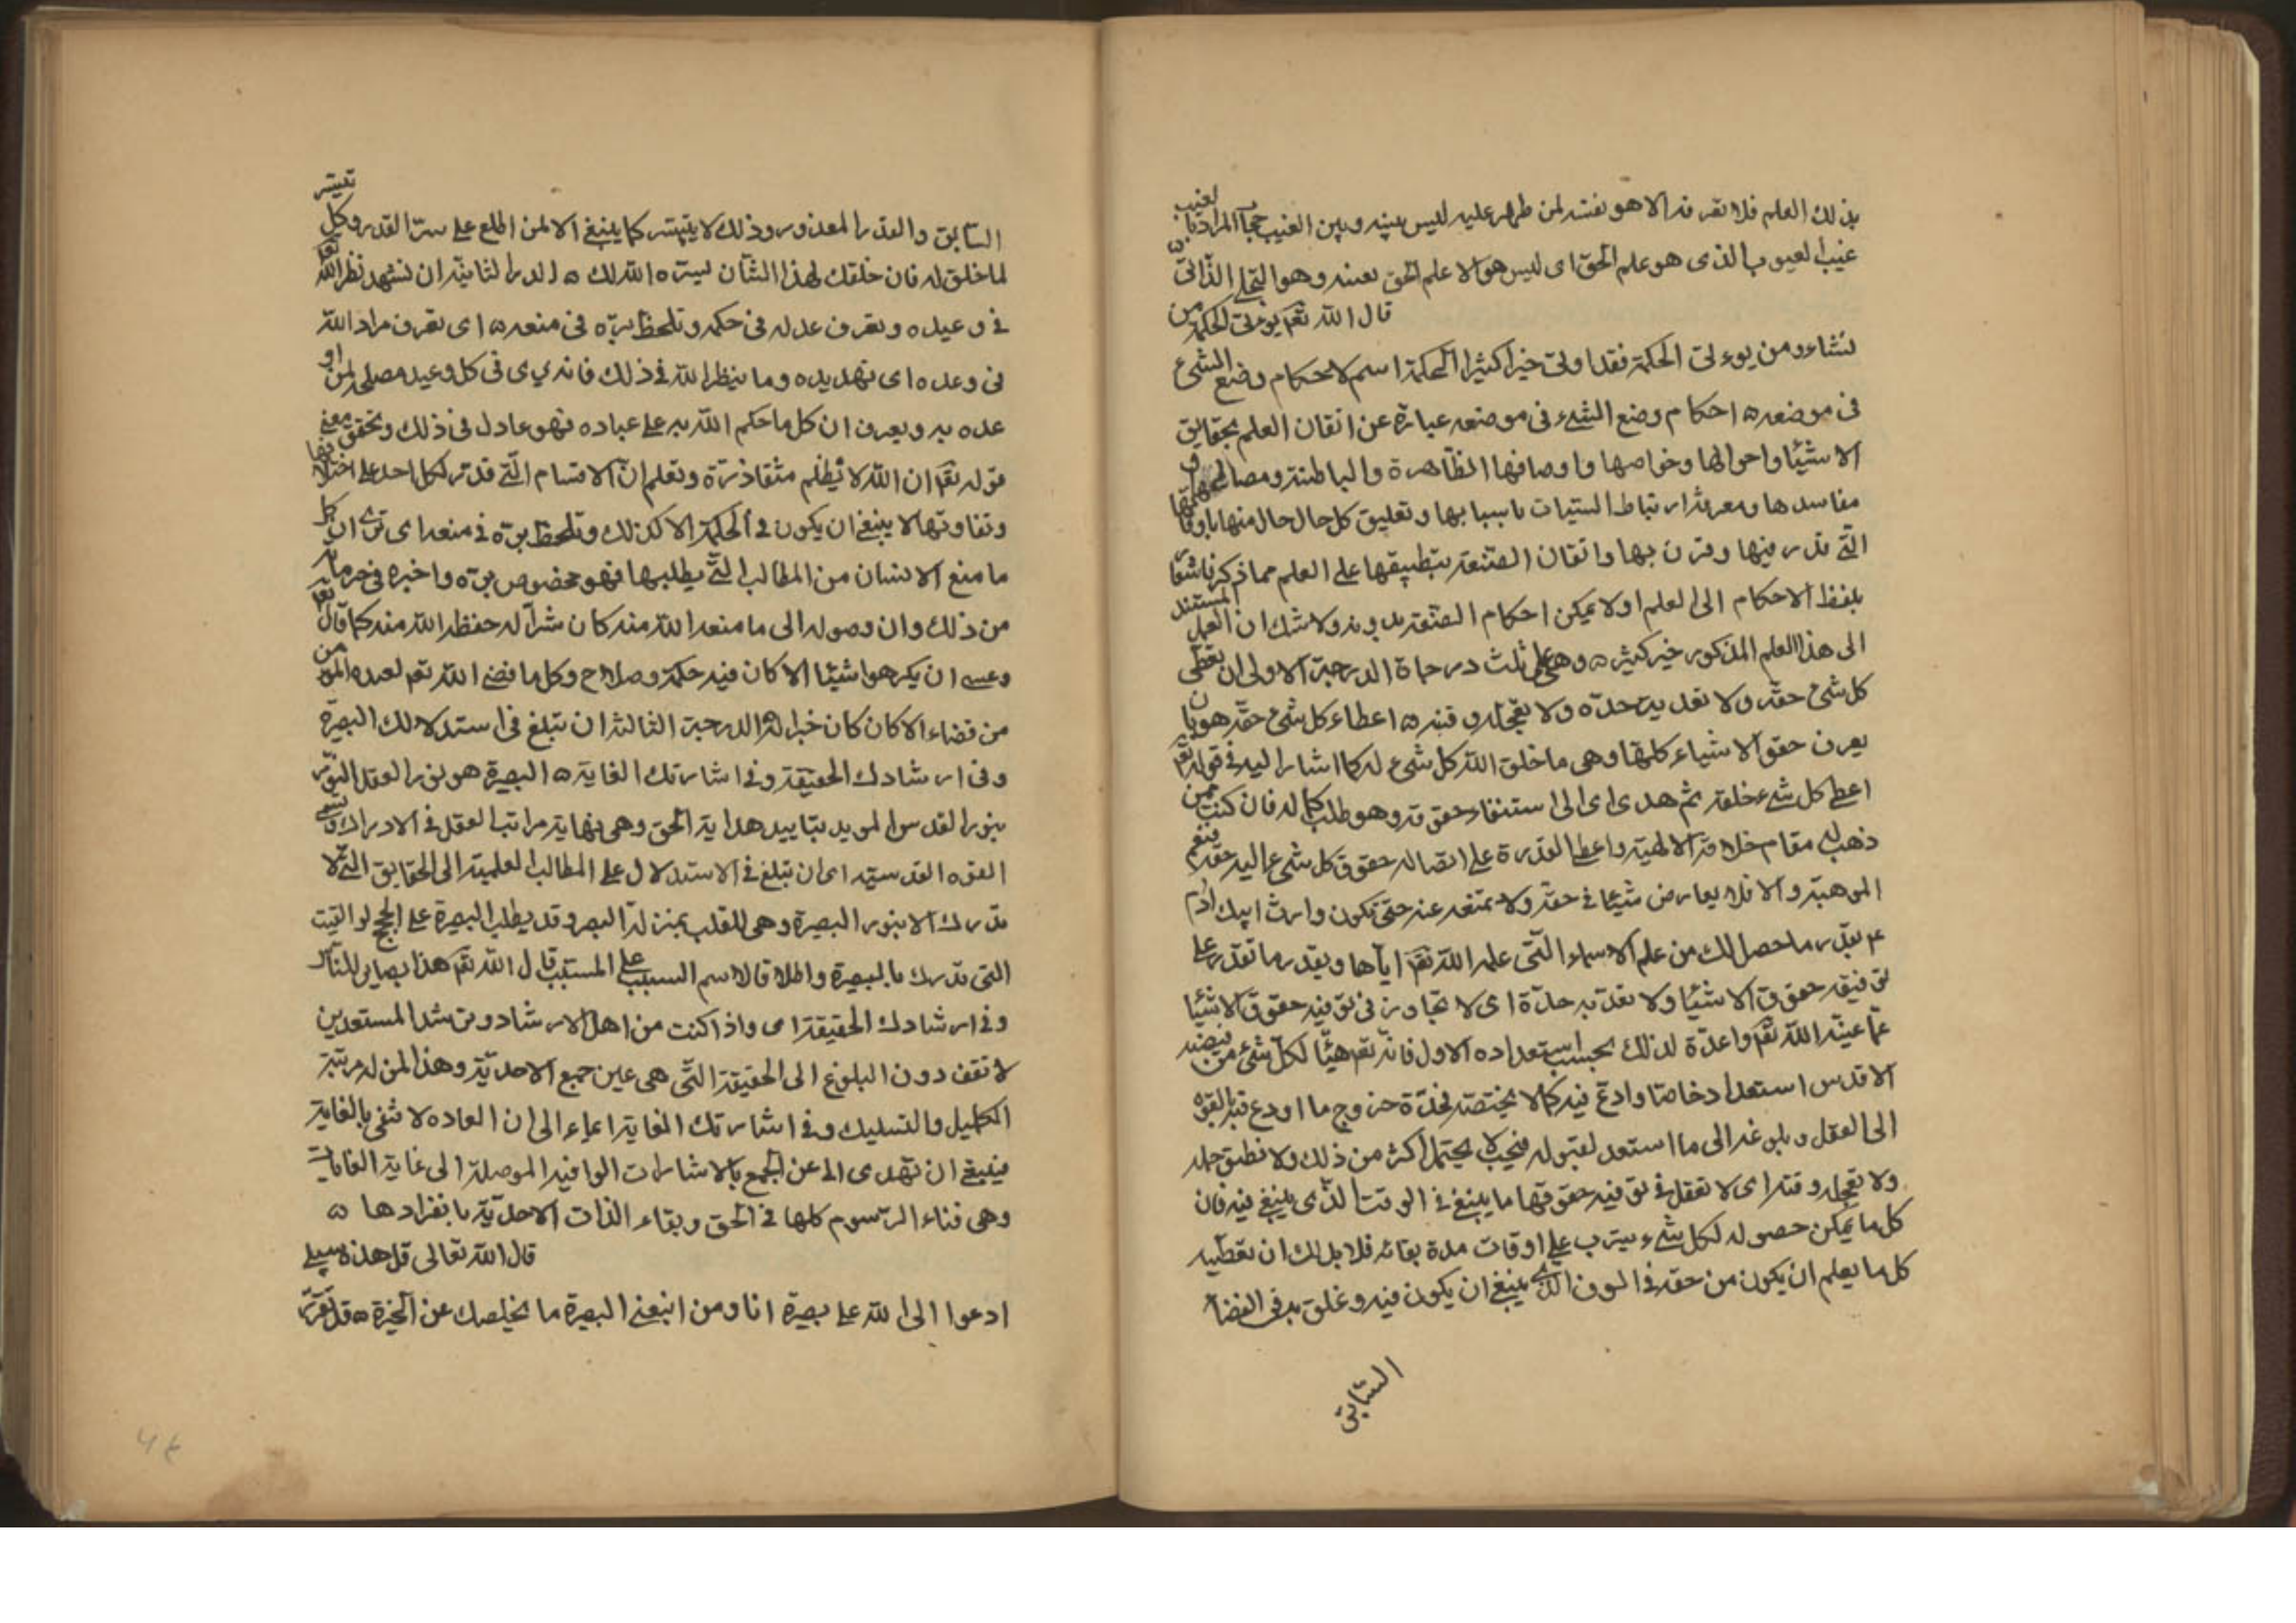 بذلك العلم فلا تعرفه الا هو نفسه لمن ظهر عليه ليس بينه وبين الغيب حجاب المراد بالغيب
غيب الغيوب الذى هو علم الحق اى ليس هو الا علم الحق بعينه وهو التجلى الذاتى
قال الله تعم يوءتى الحكمة من
يشاء ومن يوءتى الحكمة فقد اوتى خيرا كثيرا الحكمة اسم لاحكام وضع الشئ
فى موضعه احكام وضع الشئ فى موضعه عبارة عن اتقان العلم بحقايق
الاشيا واحوالها وخواصها واوصافها الظاهرة والباطنة ومصالحها و
مفاسدها ومعرفة ارتباط المسببات باسبابها وتعليق كل حال حال منها باوقاتها
التى قدر فيها وقرن بها واتقان الصنعة بتطبيقها على العلم مما ذكر فاشعار
بلفظ الاحكام الى العلم اولا يمكن احكام الصنعة بدونه ولا شك ان العمل المستند
الى هذا العلم المذكور خير كثير وهى على ثلث درجاة الدرجة الاولى ان تعطى
كل شئ حقه ولا تعديه حده ولا تعجله وقته اعطاء كل شئ حقه هو بان
يعرف حقوق الاشياء كلها وهى ما خلق الله كل شئ له كما اشار اليه فى قوله تعم
اعطى كل شئ خلقه ثم هدى اى الى استيفاء حقوقه وهو طلب كماله فان كنت ممن
ذهب له مقام خلافة الالهية واعطى القدرة على ايصال حقوق كل شئ اليه حقه فنعم
الموهبة والا فلا يعارض شيئا فى حقه ولا تمنعه عنه حتى تكون وارث ابيك ادم
عم بقدر ما حصل لك من علم الاسماء التى علمه الله تعم اياها وبقدر ما تقدر على
توفيقه حقوق الاشيا ولا تعد به حدة اى لا تجاوز فى توفيه حقوق الاشيا
عما عينه الله تعم واعدة لذلك بحسب استعداده الاول فانه تعم هيأ لكل شئ من فيضه
الاقدس استعدادخاصا وادع فيه كمالا يختصه فحدة خروج ما اودع فيه بالقوه
الى العقل وبلوغه الى ما استعد لقبوله فبحيث لا يحتمل اكثر من ذلك ولا تطبق حمله
ولا تعجله وقته اى لا تغفل فى توفيه حقوقها ما ينبغى فى الوقت الذى ينبغى فيه فان
كل ما يمكن حصوله لكل شئ يترب على اوقات مدة بقائه فلا بد لك ان تعطيه
كل ما يعلم ان يكون من حقه فى الوقت الذى ينبغى ان يكون فيه وغلق به فى القضاء
السابق
السابق والقدر المعذور وذلك لا يتيسر كما ينبغى الا لمن اطلع على سر القدر وكل تيسر
لما خلق له فان خلقك لهذا الشان ليسره الله لك الدرالثانية ان تشهد نظر الله تعم
فى وعيده وتعرف عدله فى حكمه وتلحظ بره فى منعه اى تعرف مراد الله
فى وعده اى تهديده وما ينظر الله فى ذلك فانه يرى فى كل وعيد مصلحة لمن او
عده به ويعرف ان كل ما حكم الله به على عباده فهو عادل فى ذلك وتحقق معنى
قوله تعم ان الله لا يظلم مثقا ذرة وتعلم ان الاقسام التى قدر لكل احد على اختلافها
وتفاوتها لا ينبغى ان يكون فى الحكمة الا كذلك وتلحظ بره فى منعه اى ترى ان كل
ما منع الانسان من المطالب التى يطلبها فهو محضوص بره واخيره فى حرمانه
من ذلك وان وصوله الى ما منعه الله منه كان شرآ له حفظه الله منه كما قال تعم
وعسى ان يكرهوا شيئا الا كان فيه حكمة وصلاح وكل ما قضى الله تعم لعبده المومن
من قضاء الا كان كان خيرا له الدرجة الثالثة ان تبلغ فى استدلالك البصيرة
وفى ارشادك الحقيقة وفى اشارتك الغاية البصيرة هو نور العقل المنور
بنور القدس المويد بتاييد هداية الحق وهى نهاية مراتب العقل فى الادراك وتسمى
القوه القدسية اى ان تبلغ فى الاستدلال على المطالب العلمية الى الحقايق التى لا
تدرك الا بنور البصيرة وهى للقلب بمنزلة البصر وقد يطلب البصيرة على الحجج
التى تدرك بالبصيرة واطلاقا لاسم السبب على المسبب قال الله تعم هذا بصاير للناس
وفى ارشادك الحقيقة اى واذا كنت من اهل الارشاد وترشد المستعدين
لا تقف دون البلوغ الى الحقيقة التى هى عين جمع الاحدية وهذا لمن له مرتبة
التكميل والتسليك وفى اشارتك الغاية ايماء الى ان العباده لا تفى بالغاية
فينبغى ان تهدى الى عن الجمع بالاشارات الوافيه الموصلة الى غاية الغايات
وهى فناء الرسوم كلها فى الحق وبقاء الذات الاحدية بانفرادها
قال الله تعالى قل هذه سبيلى
ادعوا الى الله على بصيرة انا ومن اتبعنى البصيرة ما يخلصك عن الحيرة